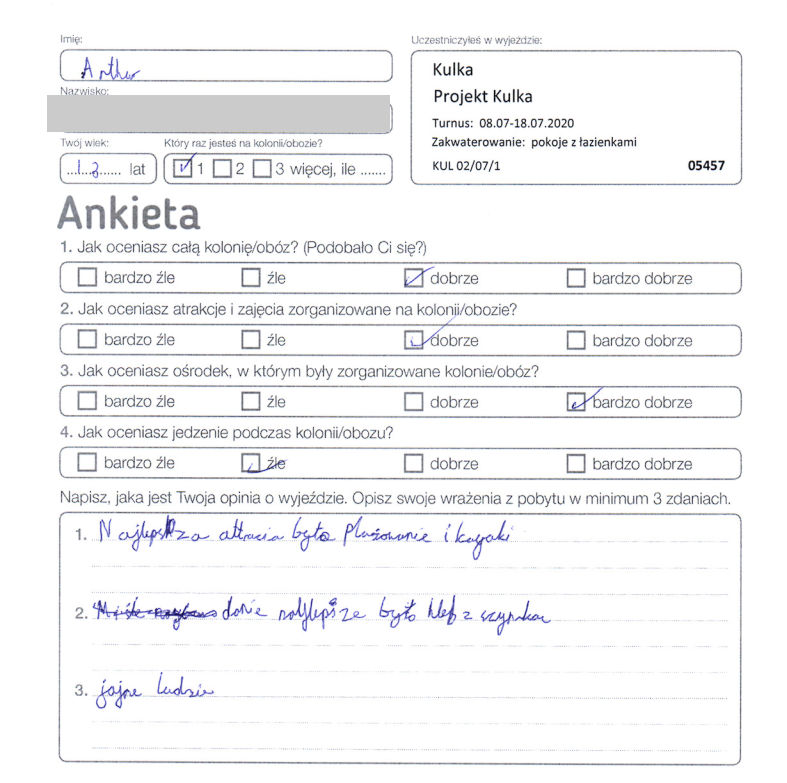 Imię:
Arthur
Nazwisko:
Twój wiek:
...13...... lat
Który raz jesteś na kolonii/obozie?
1 2 3 więcej, ile .......
Uczestniczyłeś w wyjeździe:
Kulka
Projekt Kulka
Turnus: 08.07-18.07.2020
Zakwaterowanie: pokoje z łazienkami
KUL 02/07/1 05457
Ankieta
1. Jak oceniasz całą kolonię/obóz? (Podobało Ci się?)
bardzo źle źle dobrze bardzo dobrze
2. Jak oceniasz atrakcje i zajęcia zorganizowane na kolonii/obozie?
bardzo źle źle dobrze bardzo dobrze
3. Jak oceniasz ośrodek, w którym były zorganizowane kolonie/obóz?
bardzo źle źle dobrze bardzo dobrze
4. Jak oceniasz jedzenie podczas kolonii/obozu?
bardzo źle źle dobrze bardzo dobrze
Napisz, jaka jest Twoja opinia o wyjeździe. Opisz swoje wrażenia z pobytu w minimum 3 zdaniach.
1. Najlepsza attracia była plażowanie i kayaki
2. danie najlepsze było hleb z szynkar
3. fajne ludzie